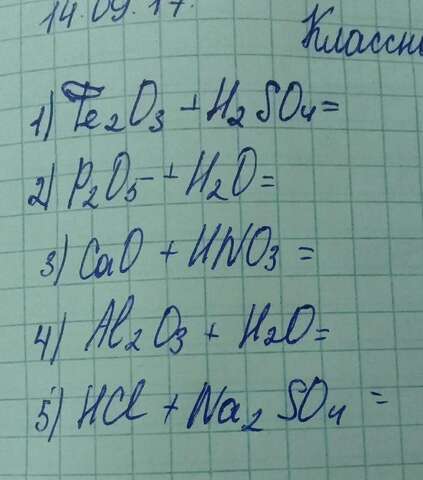 14.09.17.
Классн
1) Fe2O3 + H2SO4 =
2) P2O5 + H2O =
3) CaO + HNO3 =
4) Al2O3 + H2O =
5) HCl + Na2SO4 =